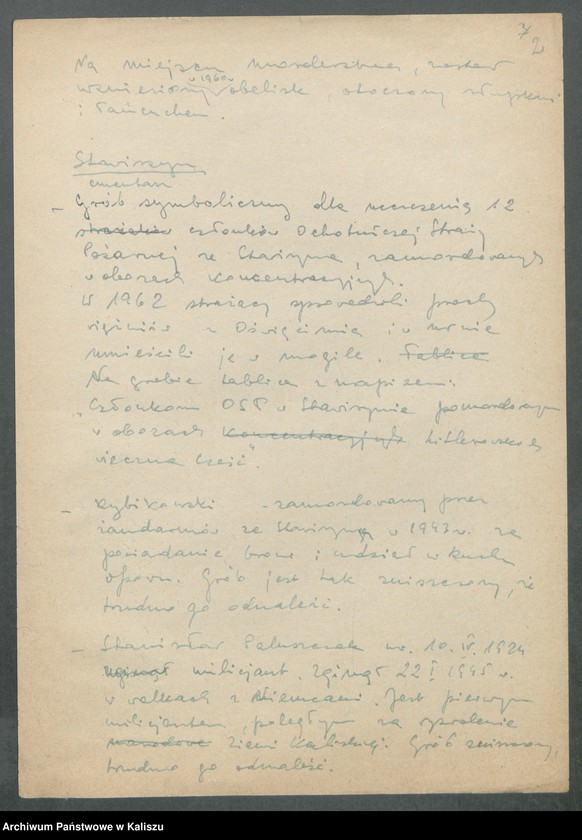 7
2
Na miejscu morderstwa, został
w 1960 r.
wzniesiony obelisk, otoczony słupkami
i łańcuchem.
Stawiszyn
cmentarz
- Grób symboliczny dla uczczenia 12
strażaków członków Ochotniczej Straży
Pożarnej ze Stawiszyna, zamordowanych
w obozach koncentracyjnych.
W 1962 strażacy sprowadzili prochy
więźniów z Oświęcimia i w urnie
umieścili je w mogile. Tablica
Na grobie tablica z napisem:
"Członkom OSP w Stawiszynie pomordowanym
w obozach koncentracyjnych hitlerowskich
wieczna cześć".
- Rybikowski - zamordowany przez
żandarmów ze Stawiszyna w 1943 r. za
posiadanie broni i udział w ruchu
oporu. Grób jest tak zniszczony, że
trudno go odnaleźć.
- Stanisław Paluszczak ur. 10.IV.1924
zginął milicjant. Zginął 22 I 1945 r.
w walkach z Niemcami. Jest pierwszym
milicjantem, poległym za wyzwolenie
narodowe Ziemi Kaliskiej. Grób zniszczony,
trudno go odnaleźć.
Archiwum Państwowe w Kaliszu